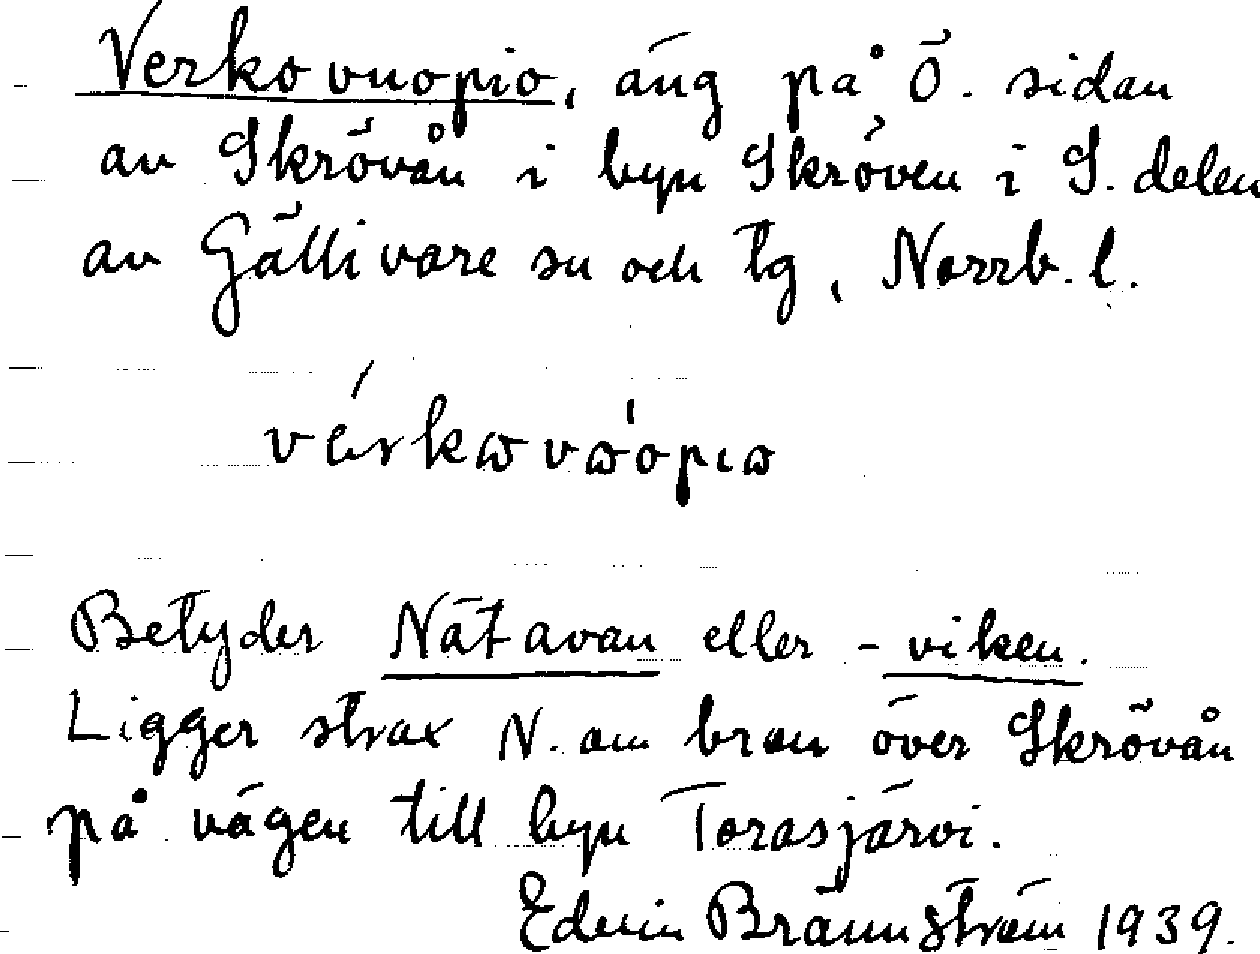 Verkovuopio, äng på Ö. sidan
av Skrövån i byn Skröven i S. delen
av Gällivare sn och tg, Norrb. l.
Betyder Nätavan eller -viken.
Ligger strax N. om bron över Skrövån
på vägen till byn Torasjärvi.
Edvin Brännström 1939.